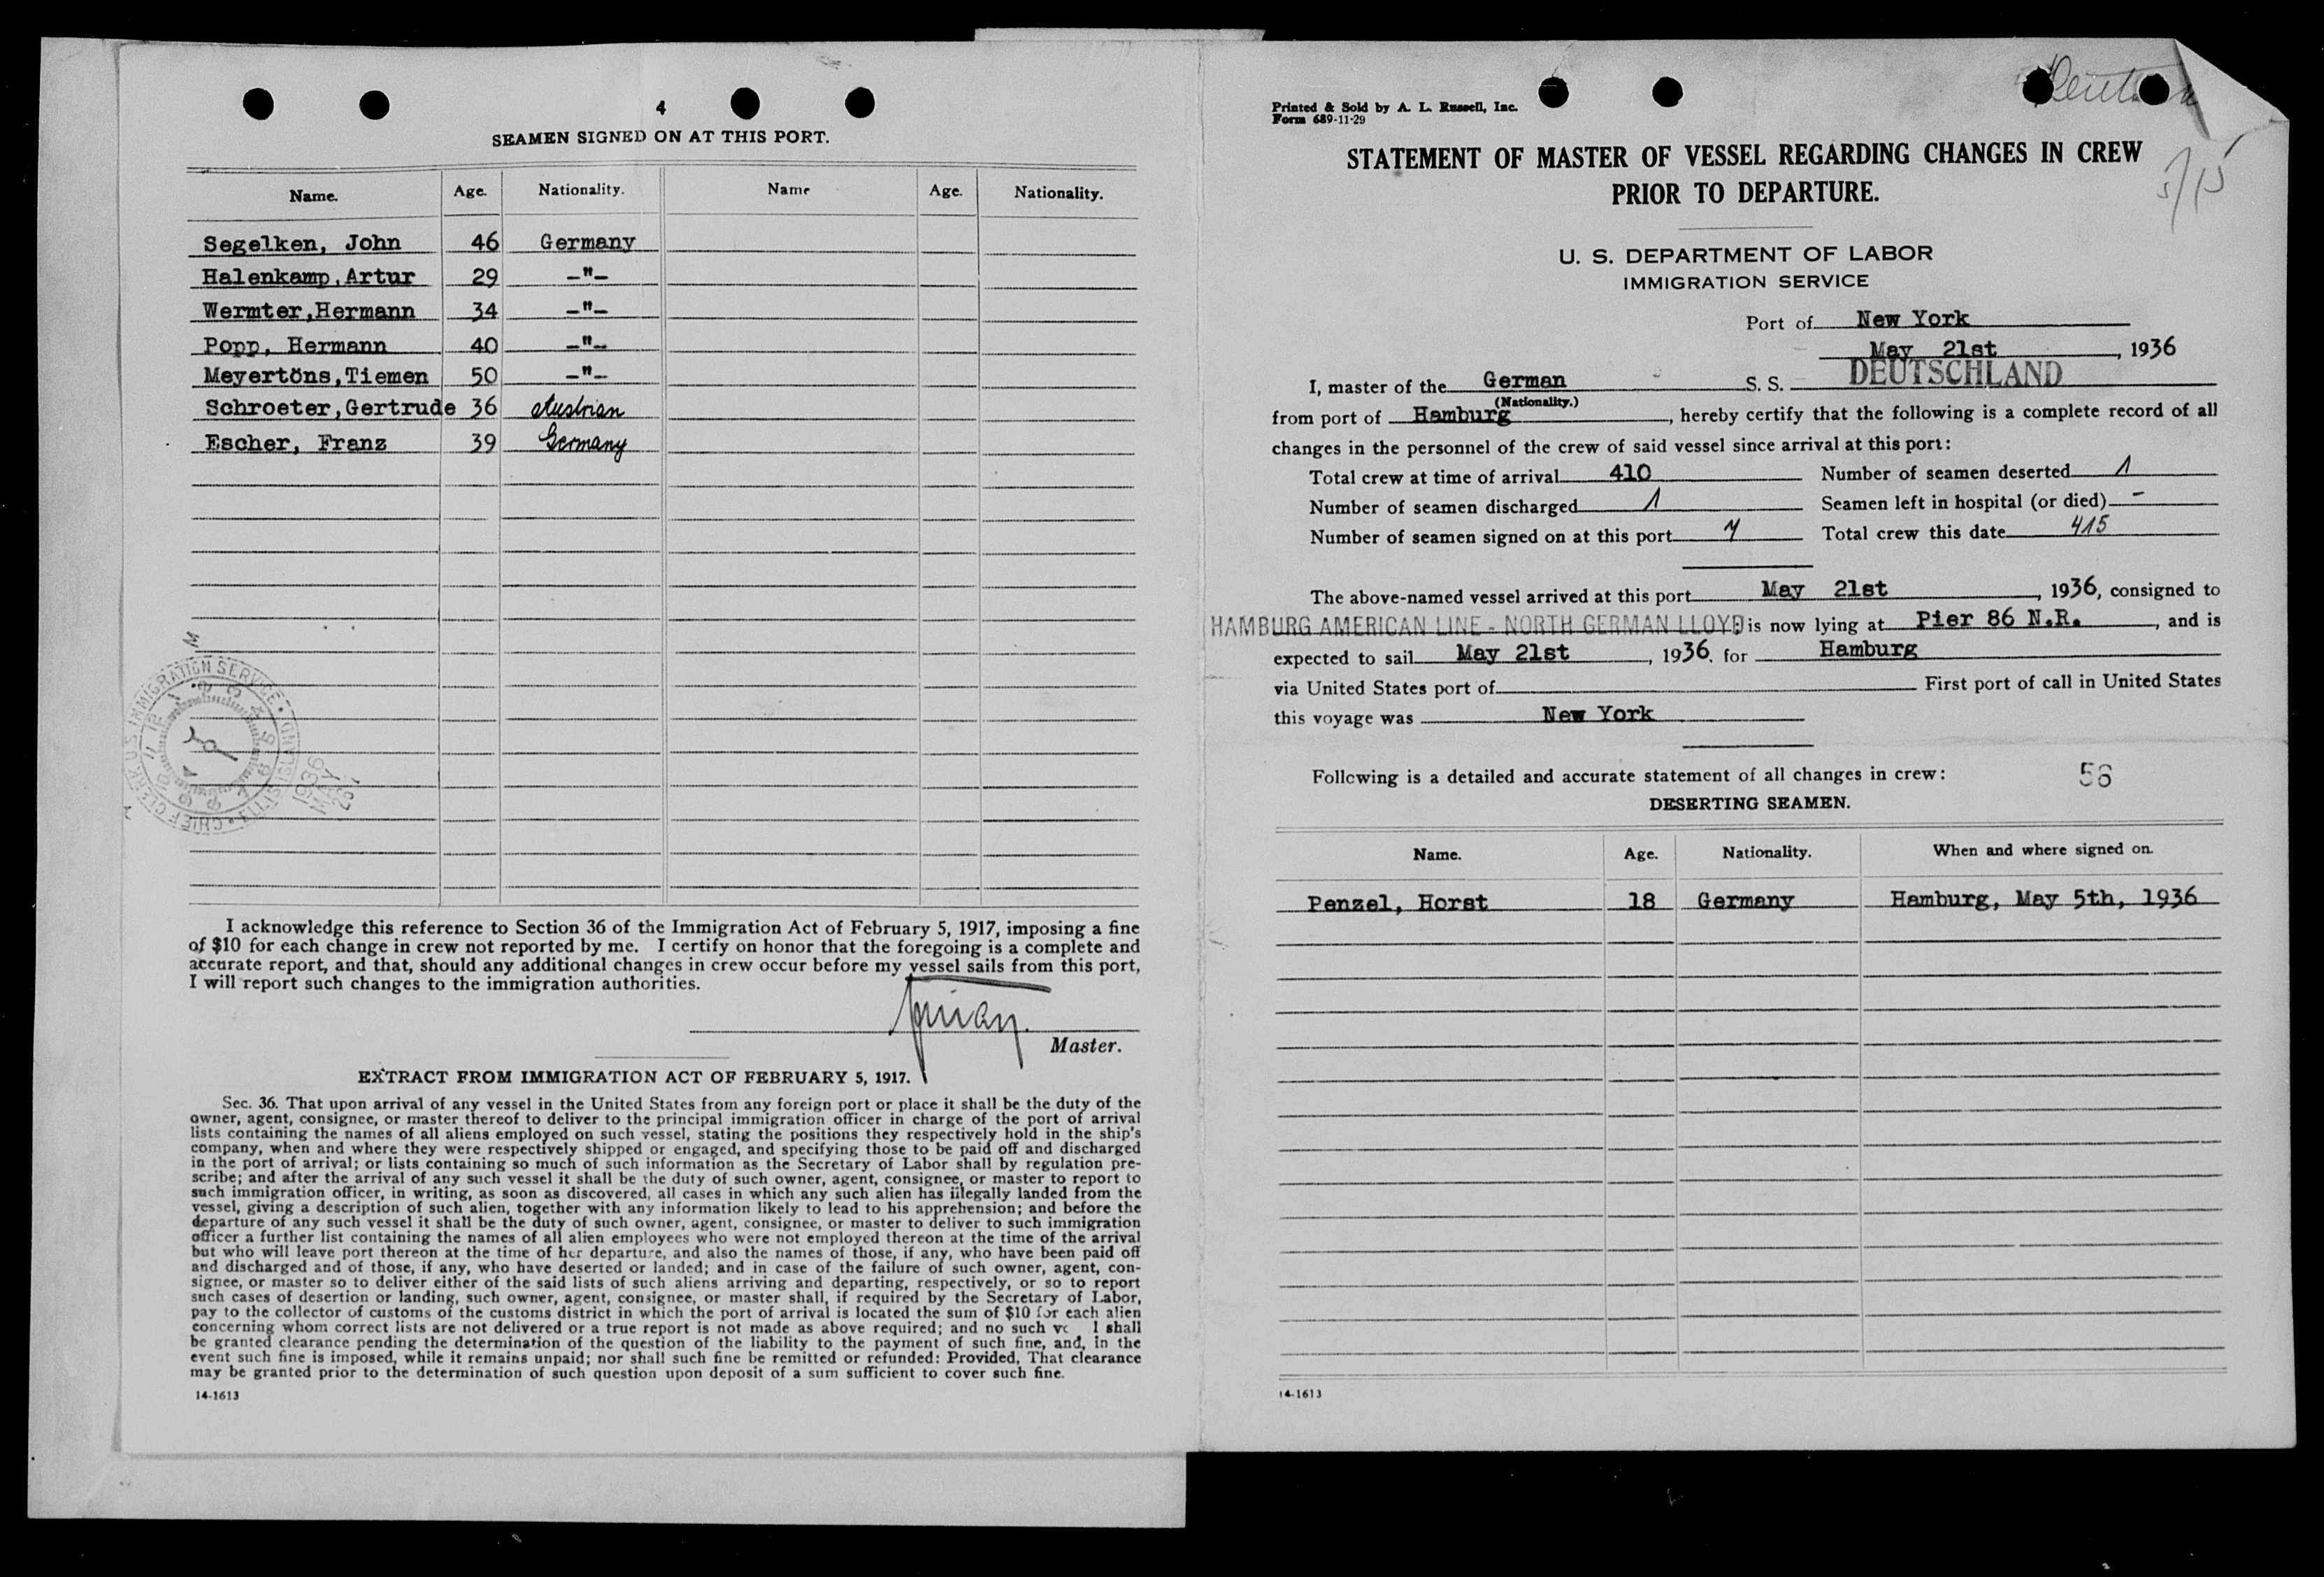 4
SEAMEN SIGNED ON AT THIS PORT.
Name. Age. Nationality. Name Age. Nationality.
Segelken, John 46 Germany
Halenkamp, Artur 29 -"-
Wermter, Hermann 34 -"-
Popp, Hermann 40 -"-
Meyertöns, Tiemen 50 -"-
Schroeter, Gertrude 36 Austrian
Escher, Franz 39 Germany
CHIEF CLERK US IMMIGRATION SERVICE · ELLIS ISLAND
1936
MAY
I acknowledge this reference to Section 36 of the Immigration Act of February 5, 1917, imposing a fine
of $10 for each change in crew not reported by me. I certify on honor that the foregoing is a complete and
accurate report, and that, should any additional changes in crew occur before my vessel sails from this port,
I will report such changes to the immigration authorities.
Master.
EXTRACT FROM IMMIGRATION ACT OF FEBRUARY 5, 1917.
Sec. 36. That upon arrival of any vessel in the United States from any foreign port or place it shall be the duty of the
owner, agent, consignee, or master thereof to deliver to the principal immigration officer in charge of the port of arrival
lists containing the names of all aliens employed on such vessel, stating the positions they respectively hold in the ship's
company, when and where they were respectively shipped or engaged, and specifying those to be paid off and discharged
in the port of arrival; or lists containing so much of such information as the Secretary of Labor shall by regulation pre-
scribe; and after the arrival of any such vessel it shall be the duty of such owner, agent, consignee, or master to report to
such immigration officer, in writing, as soon as discovered, all cases in which any such alien has illegally landed from the
vessel, giving a description of such alien, together with any information likely to lead to his apprehension; and before the
departure of any such vessel it shall be the duty of such owner, agent, consignee, or master to deliver to such immigration
officer a further list containing the names of all alien employees who were not employed thereon at the time of the arrival
but who will leave port thereon at the time of her departure, and also the names of those, if any, who have been paid off
and discharged and of those, if any, who have deserted or landed; and in case of the failure of such owner, agent, con-
signee, or master so to deliver either of the said lists of such aliens arriving and departing, respectively, or so to report
such cases of desertion or landing, such owner, agent, consignee, or master shall, if required by the Secretary of Labor,
pay to the collector of customs of the customs district in which the port of arrival is located the sum of $10 for each alien
concerning whom correct lists are not delivered or a true report is not made as above required; and no such shall
be granted clearance pending the determination of the question of the liability to the payment of such fine, and, in the
event such fine is imposed, while it remains unpaid; nor shall such fine be remitted or refunded: Provided, That clearance
may be granted prior to the determination of such question upon deposit of a sum sufficient to cover such fine.
14-1613
Printed & Sold by A. L. Russell, Inc.
Form 689-11-29
STATEMENT OF MASTER OF VESSEL REGARDING CHANGES IN CREW
PRIOR TO DEPARTURE.
5/15
U. S. DEPARTMENT OF LABOR
IMMIGRATION SERVICE
Port of New York
May 21st, 1936
I, master of the German S. S. DEUTSCHLAND
(Nationality.)
from port of Hamburg, hereby certify that the following is a complete record of all
changes in the personnel of the crew of said vessel since arrival at this port:
Total crew at time of arrival 410 Number of seamen deserted 1
Number of seamen discharged 1 Seamen left in hospital (or died) -
Number of seamen signed on at this port 7 Total crew this date 415
The above-named vessel arrived at this port May 21st, 1936, consigned to
HAMBURG AMERICAN LINE - NORTH GERMAN LLOYD is now lying at Pier 86 N.R., and is
expected to sail May 21st, 1936. for Hamburg
via United States port of First port of call in United States
this voyage was New York
Following is a detailed and accurate statement of all changes in crew: 56
DESERTING SEAMEN.
Name. Age. Nationality. When and where signed on.
Penzel, Horst 18 Germany Hamburg, May 5th, 1936
14-1613